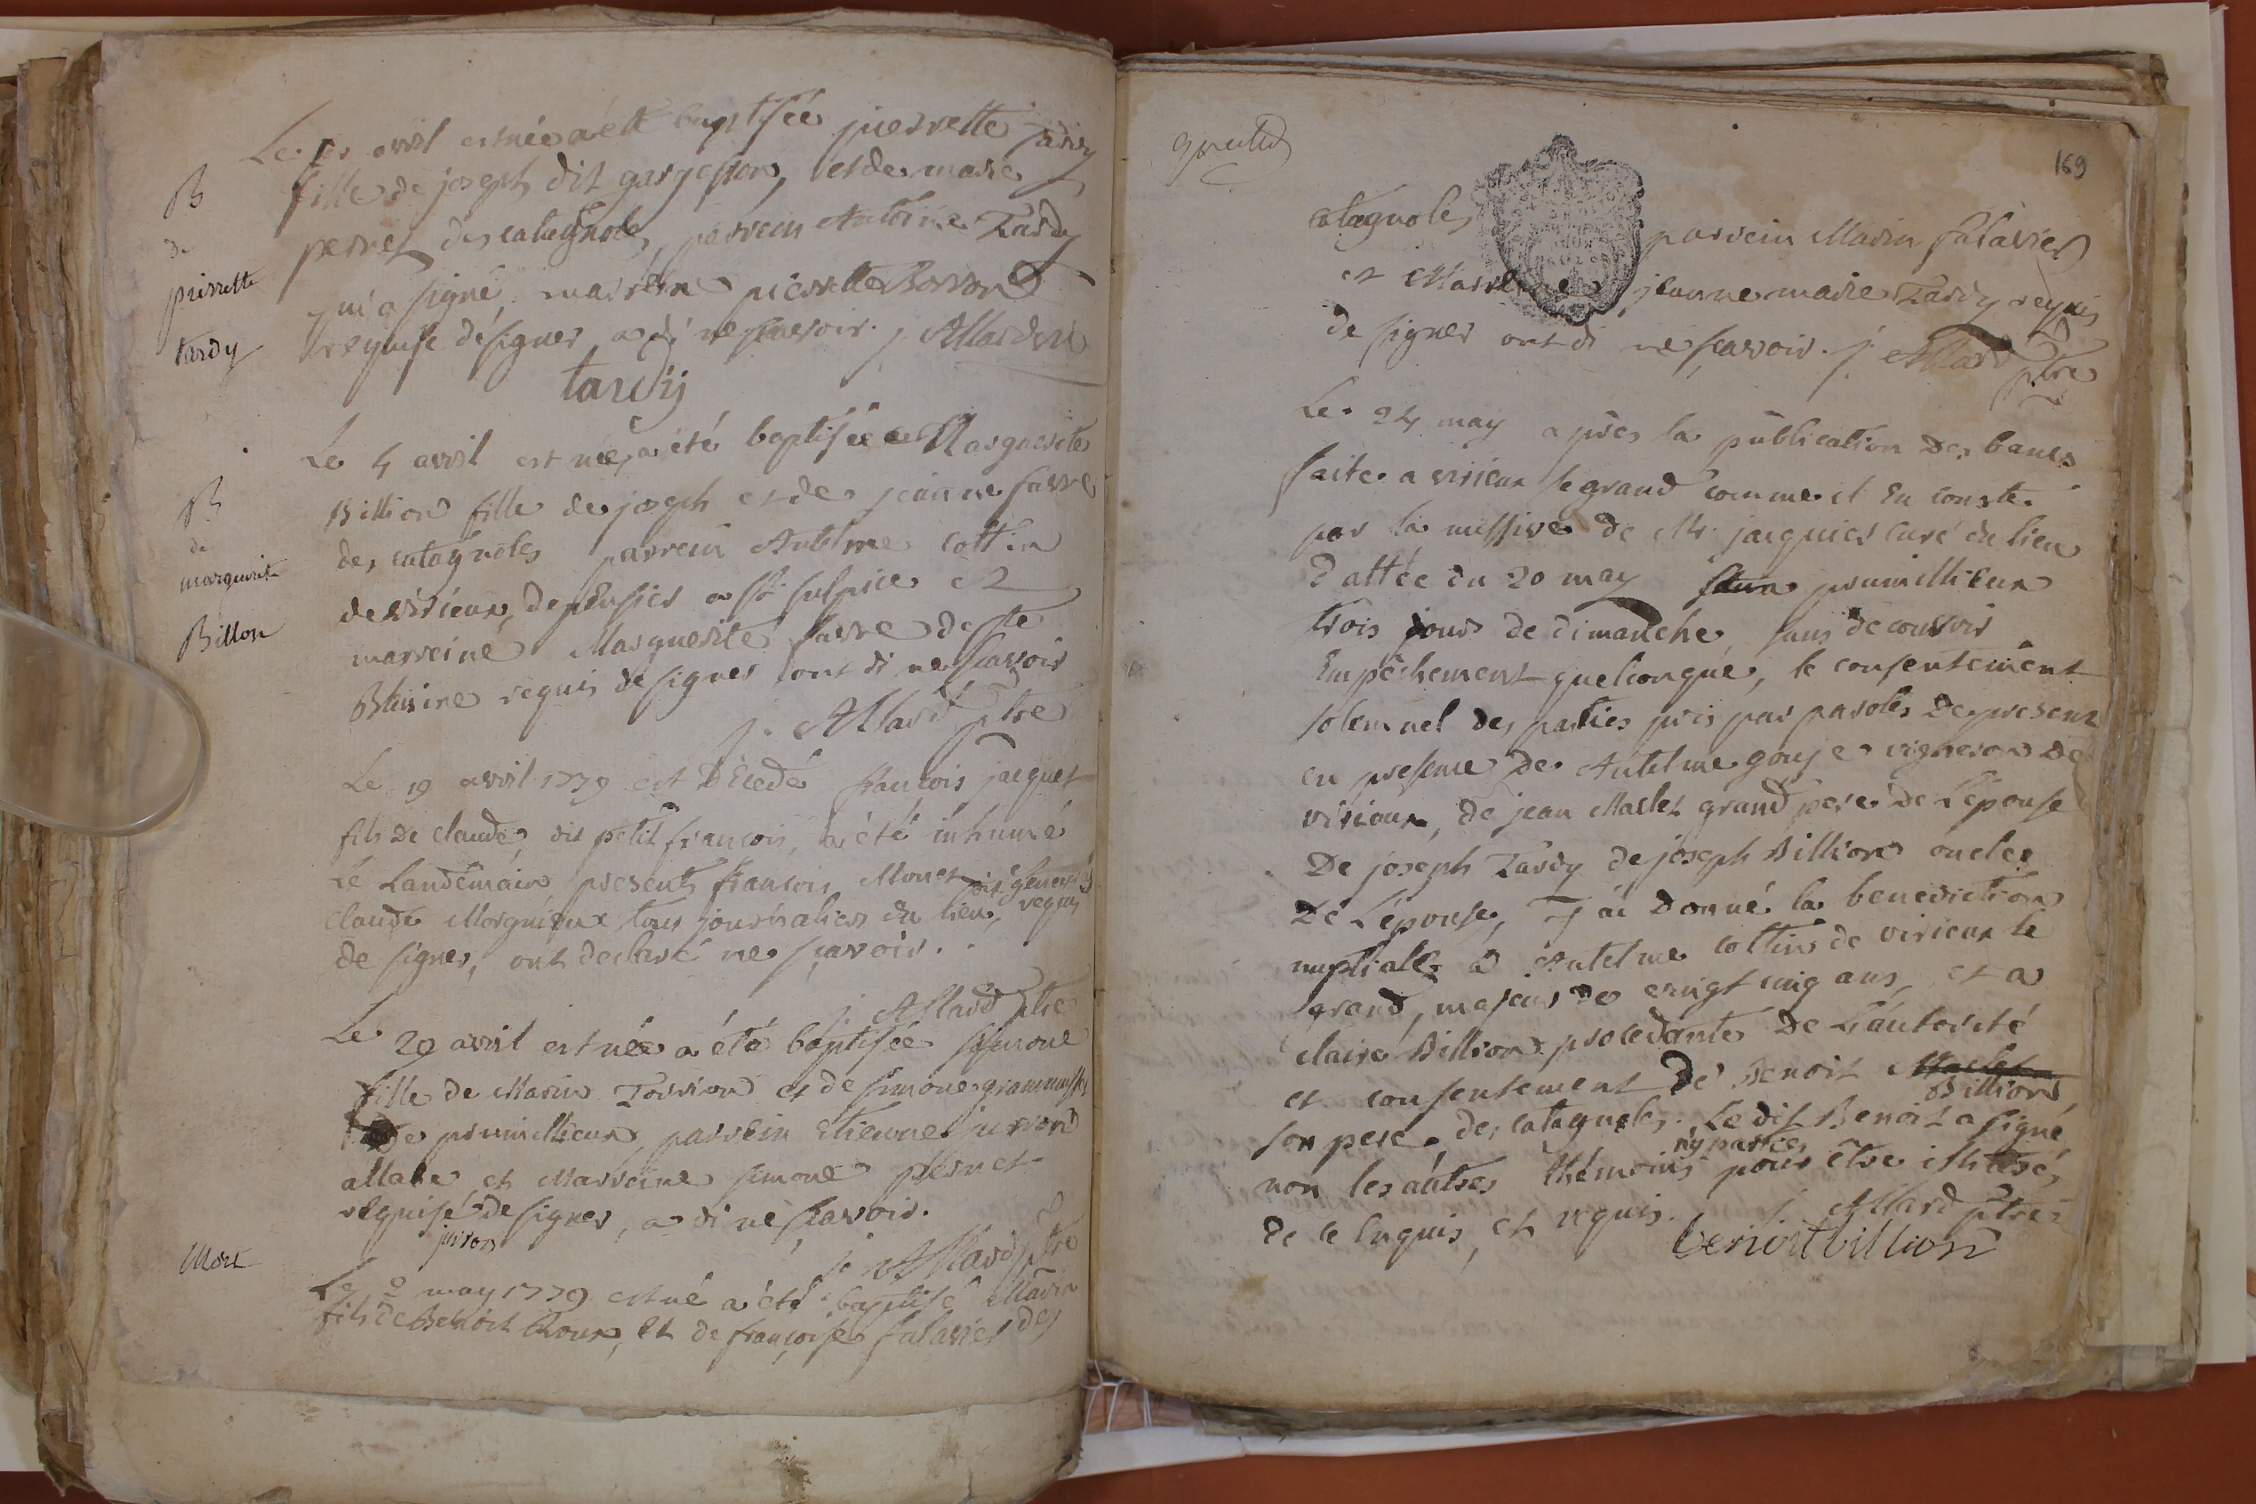 Le 1er avril est née a été baptisée pierrette Tardy
fille de joseph dit et de marie
perret des catagnoles, parrein Antoine Tardy
qui a signé mareine pierrette
requise de signer a di ne scavoir. j Allard
tardy
B
de
pierrette
tardy
Le 4 avril est née, a été baptisée Marguerite
Billion fille de joseph et de jeanne favre
des catagnoles parrein Antelme cottin
de virieux, de a st sulpice et
marreine Marguerite favre de ste
Blaisine requis de signer ont di ne scavoir
j. Allard ptre
B
de
marguerite
Billon
Le 19 avril 1779 est Décedé francois jacquet
fils de claude dit petit francois, a été inhumé
Le Landemain presents francois Monet
claude tous journaliers du lieu, requis
de signer, ont declaré ne scavoir.
j. Allard ptre
Le 29 avril est née a été baptisée simone
fille de Marin et de simone
de premillieux, parrein etienne
et Marreine simone
requise de signer, a di ne scavoir.
j. Allard ptre
Mort
Le 2 may 1779 est né a été baptisé Marin
fils de Benoit Roux, et de francoise falavier des
169
catagnoles parrein Marin falavier
et Marreine jeanne marie Tardy requis
de signer ont di ne scavoir. j. Allard ptre
Le 24 may après la publication des bancs
faite a virieux le grand comme il en conste
par la missive de Mr. jacquier curé du lieu
dattée du 20 may premillieux
trois jours de dimanche sans decouvrir
Empêchement quelconque, le consentement
solemnel des parties pris par paroles de present
en presence de Antelme gouje vigneron de
virieux, de jean grand pere de L'épouse
De joseph Tardy de joseph Billion oncles
De L'épouse, j'ai donné la benediction
nuptiale a Antelme cottin de virieux le
grand, majeur de vingt cinq ans, et a
claire Billion procedante de L'autorité
et consentement de Benoit
Billion
son pere, des catagnoles. Le dit Benoit a signé
ny parties
non les autres thémoins pour être illiterés
de ce enquis, et requis. j Allard ptre
benoit billion